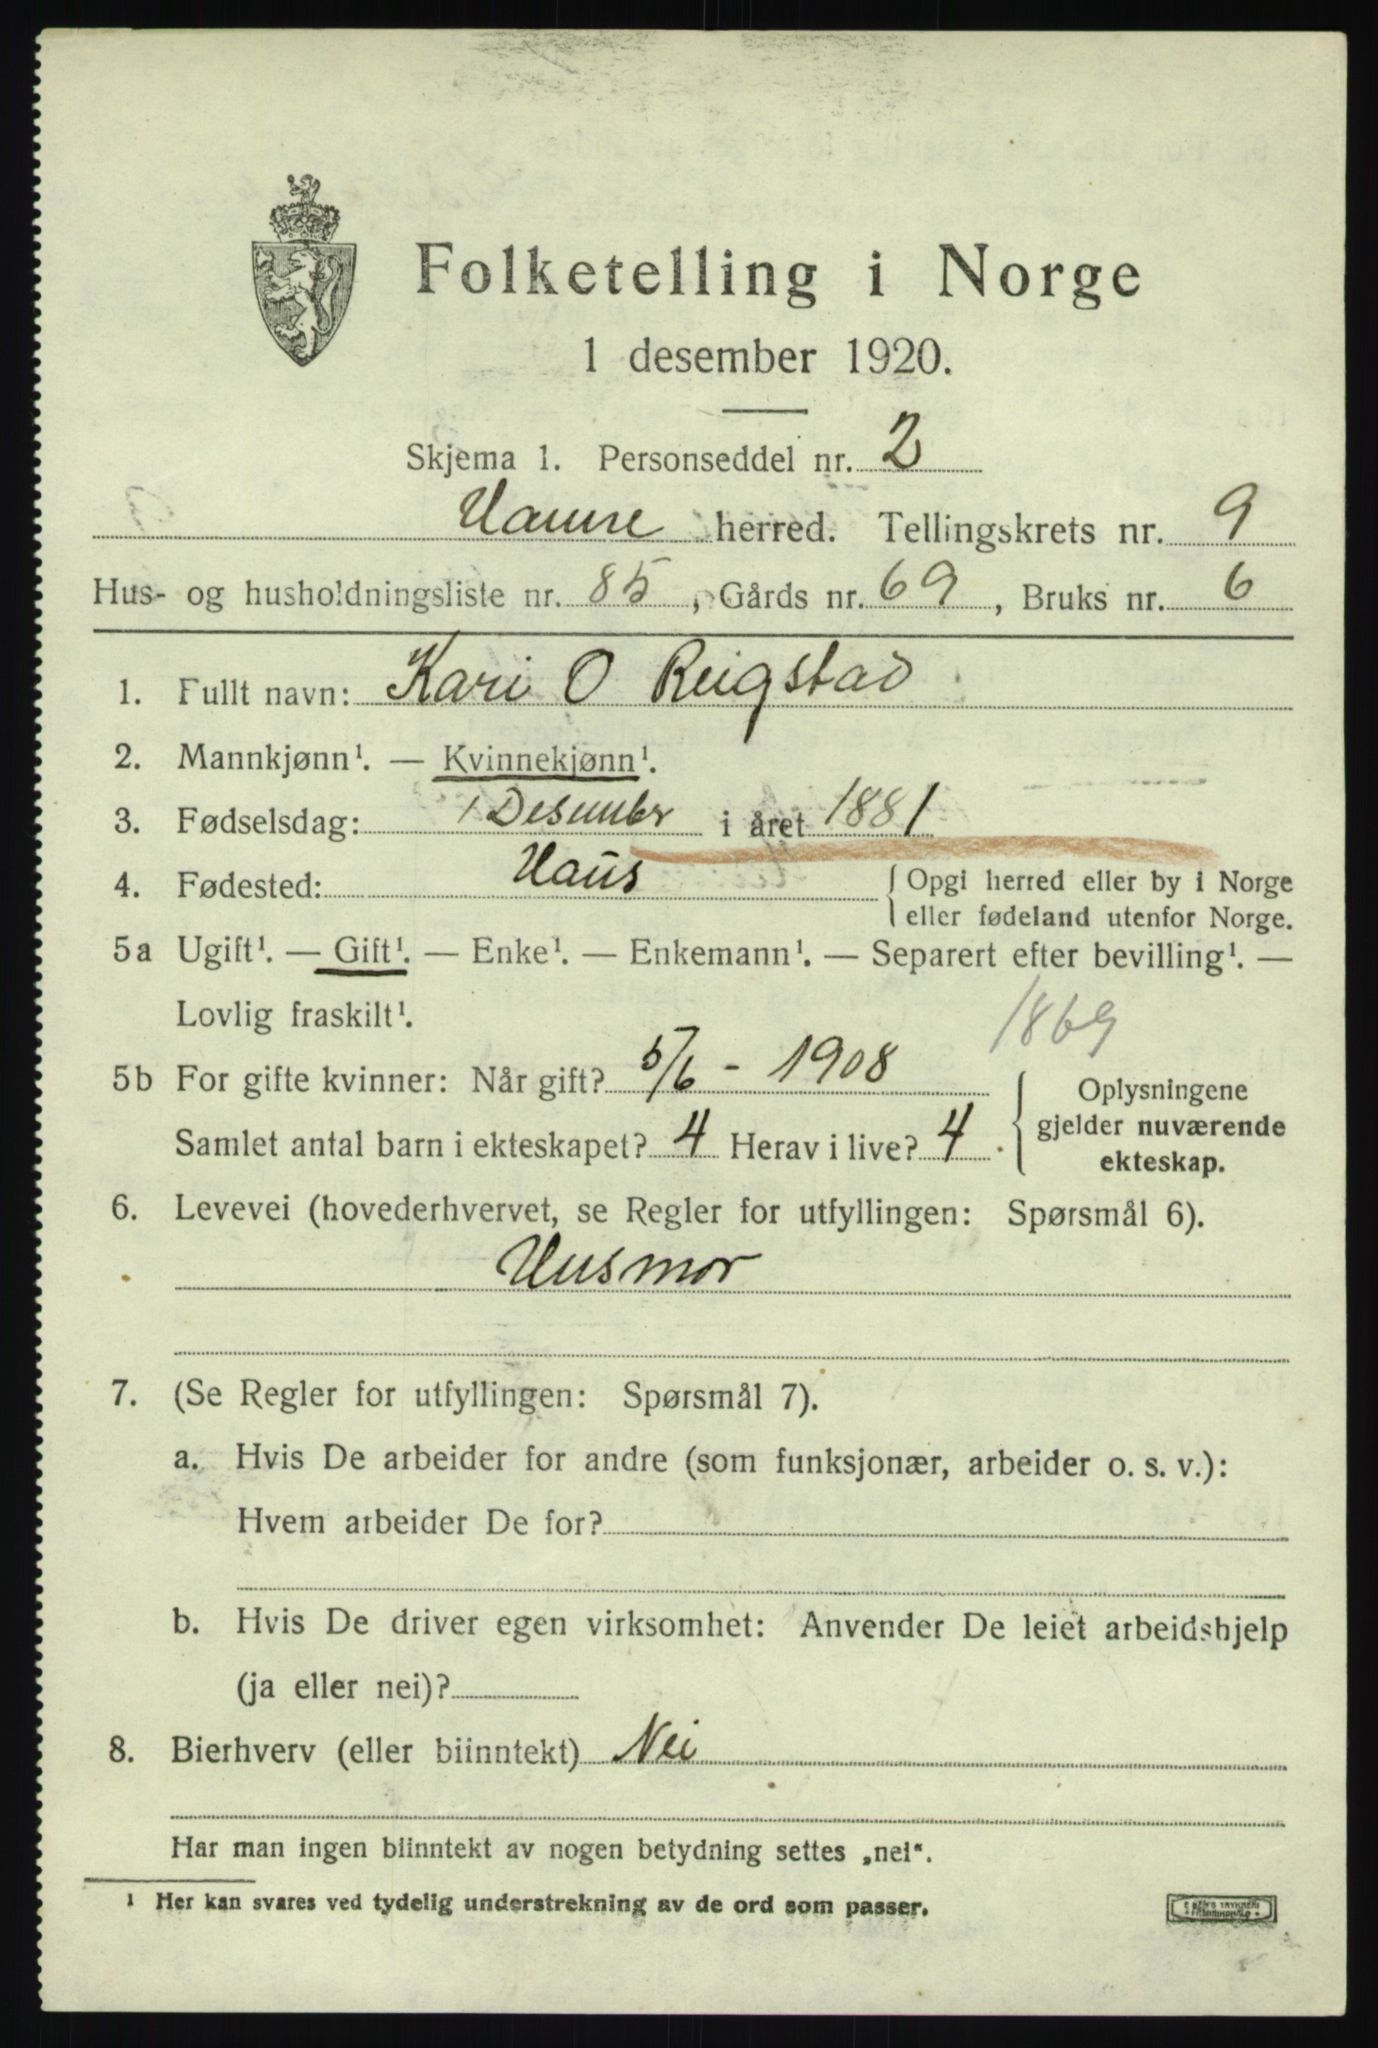 Folketelling i Norge
1 desember 1920.
Skjema 1. Personseddel nr. 2
Hamre herred. Tellingskrets nr. 9
Hus- og husholdningsliste nr. 85, Gårds nr. 69, Bruks nr. 6
1. Fullt navn: Kari O Reigstad
2. Mannkjønn¹. — Kvinnekjønn¹.
3. Fødselsdag: 1 Desember i året 1881
4. Fødested: Haus { Opgi herred eller by i Norge
eller fødeland utenfor Norge.
5a Ugift¹. — Gift¹. — Enke¹. — Enkemann¹. — Separert efter bevilling¹. —
Lovlig fraskilt¹.
1869
5b For gifte kvinner: Når gift? 5/6 - 1908
Samlet antal barn i ekteskapet? 4 Herav i live? 4.
{ Oplysningene
gjelder nuværende
ekteskap.
6. Levevei (hovederhvervet, se Regler for utfyllingen: Spørsmål 6).
Husmor
7. (Se Regler for utfyllingen: Spørsmål 7).
a. Hvis De arbeider for andre (som funksjonær, arbeider o. s. v.):
Hvem arbeider De for?
b. Hvis De driver egen virksomhet: Anvender De leiet arbeidshjelp
(ja eller nei)?
8. Bierhverv (eller biinntekt) Nei
Har man ingen biinntekt av nogen betydning settes „nei“.
¹ Her kan svares ved tydelig understrekning av de ord som passer.